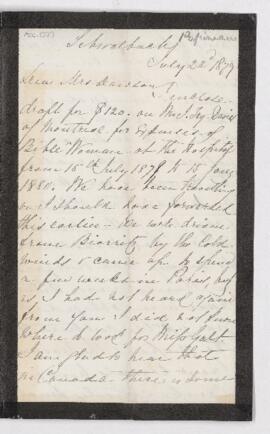 Schwalbach
July 22d 1879
Dear Mrs Dawson
I enclose
draft for $120. on
of Montreal for expenses of
Bible Woman at the Hospital
from 15th July 1879 to 15 Jany
1880. We have been travelling
or I should have forwarded
this earlier – We were driven
from Biarritz by the cold
winds & came up to spend
a few weeks in Paris, but
as I had not heard again
from you I did not know
where to look for Miss Galt
I am glad to hear that
in Canada there is some